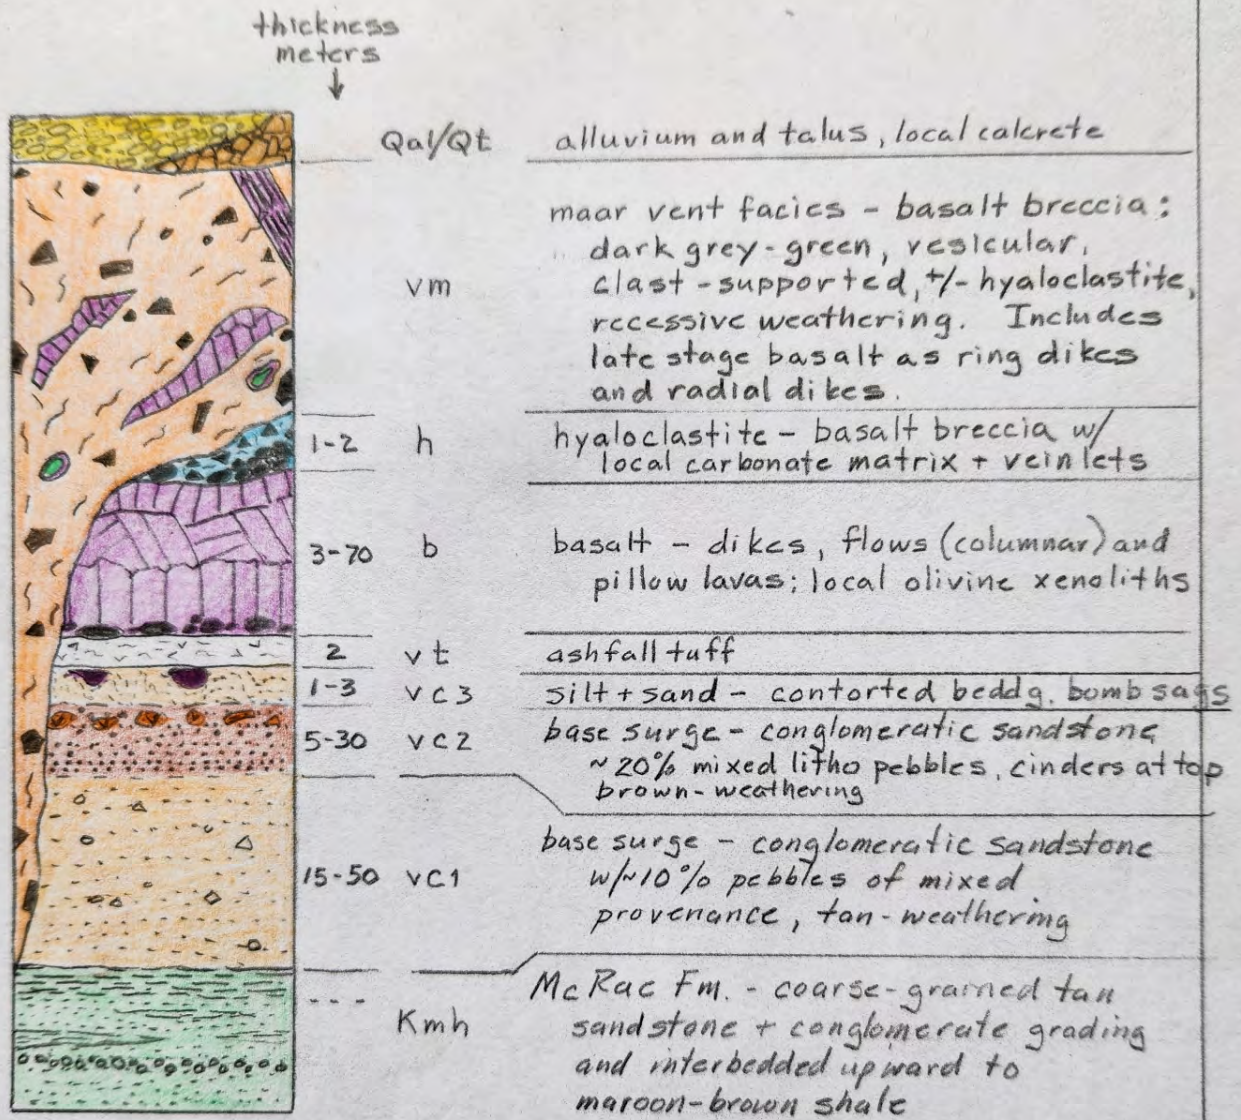 thickness
meters
Qal/Qt alluvium and talus, local calcrete
maar vent facies - basalt breccia:
dark grey-green, vesicular,
vm clast-supported, +/- hyaloclastite,
recessive weathering. Includes
late stage basalt as ring dikes
and radial dikes.
1-2 h hyaloclastite - basalt breccia w/
local carbonate matrix + veinlets
3-70 b basalt - dikes, flows (columnar) and
pillow lavas; local olivine xenoliths
2 vt ashfall tuff
1-3 vc3 silt + sand - contorted beddg. bomb sags
5-30 vc2 base surge - conglomeratic sandstone
~20% mixed litho pebbles, cinders at top
brown-weathering
base surge - conglomeratic sandstone
15-50 vc1 w/~10% pebbles of mixed
provenance, tan-weathering
McRae Fm. - coarse-grained tan
--- Kmh sandstone + conglomerate grading
and interbedded upward to
maroon-brown shale